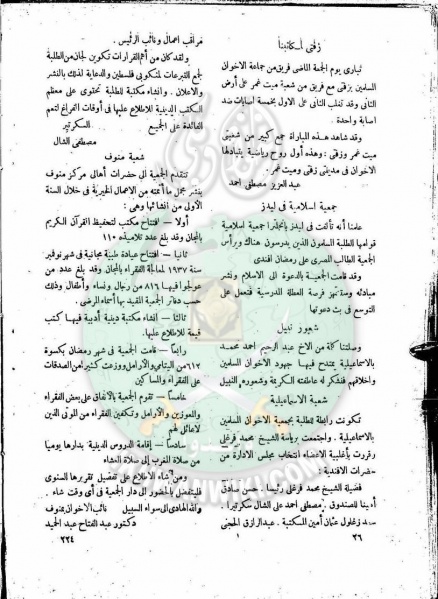 زفتى لمكاتبنا
تبارى يوم الجمعة الماضى فريق من جماعة الاخوان
المسلمين بزفتى مع فريق من شعبة ميت غمر على أرض
الثانى وقد تغلب الثانى على الاول بخمسة اصابات ضد
اصابة واحدة .
وقد شاهد هذه المباراة جمع كبير من شعبتى
ميت غمر وزفتى : وهذه أول روح رياضية يتبادلها
الاخوان فى مدينتى زفتى وميت غمر .
عبد العزيز مصطفى احمد
جمعية اسلامية فى ليدز
علمنا أنه تألفت فى ليدز بانجلترا جمعية اسلامية
قوامها الطلبة المسلمون الذين يدرسون هناك ويرأس
الجمعية الطالب المصرى على رمضان افندى
وقد قامت الجمعية بالدعوة الى الاسلام ونشر
مبادئه وستنتهز فرصة العطلة المدرسية فتعمل على
التوسع فى بث دعوتها
شعور نبيل
وصلتنا كلمة من الاخ عبد الرحيم احمد محمد
بالاسماعيلية يمتدح فيها جهود الاخوان المسلمين
واخلاقهم فنشكر له عاطفته الكريمة وشعوره النبيل
شعبة الاسماعيلية
تكونت رابطة للطلبة بجمعية الاخوان المسلمين
بالاسماعيلية . واجتمعت برياسة الشيخ محمد فرغلى
وقررت بأغلبية الاعضاء انتخاب مجلس الادارة من
حضرات الافندية :
فضيلة الشيخ محمد فرغلى رئيسا . حسن صادق
أمينا للصندوق . مصطفى احمد على الشال سكرتيرا .
سعد زغلول عثمان أمين للمكتبة . عبد الرازق
٣٦
مراقب اعمال ونائب الرئيس .
ولقد كان من أهم القرارات تكوين لجان من الطلبة
لجمع التبرعات لمنكوبى فلسطين والدعاية لذلك بالنشر
والاعلان . وانشاء مكتبة للطلبة تحتوى على معظم
الكتب الدينية للاطلاع عليها فى أوقات الفراغ لتعم
الفائدة على الجميع السكرتير
مصطفى الشال
شعبة منوف
تتقدم الجمعية الى حضرات أهالى مركز منوف
بنشر مجمل ما أتمته من الاعمال الخيرية فى خلال السنة
الأولى من انشائها وهى :
أولا — افتتاح مكتب لتحفيظ القرآن الكريم
بالمجان وقد بلغ عدد تلاميذه ١١٠
ثانيا — افتتاح عيادة طبية مجانية فى شهر نوفمبر
سنة ١٩٣٧ لمعالجة الفقراء بالمجان وقد بلغ عدد من
عولجوا فيها ٨١٦ من رجال ونساء وأطفال وذلك
حسب دفاتر الجمعية المقيد بها أسماء المرضى .
ثالثا — انشاء مكتبة دينية أدبية فيها كتب
قيمة للاطلاع عليها .
رابعا — قامت الجمعية فى شهر رمضان بكسوة
٦١٢ من اليتامى والأرامل ووزعت كثير من الصدقات
على الفقراء والمساكين
خامسا — تقوم الجمعية بالانفاق على بعض الفقراء
والمعوزين والأرامل وتكفين الفقراء من الموتى الذين
لا عائل لهم
سادسا — إقامة الدروس الدينية بدارها يوميا
من صلاة المغرب إلى صلاة العشاء
ومن شاء الاطلاع على تفصيل تقريرها السنوى
فليتفضل بالحضور الى دار الجمعية فى أى وقت شاء .
والله الهادى الى سواء السبيل نائب الاخوان بمنوف
دكتور عبد الفتاح عبد الحميد
٢٢٤